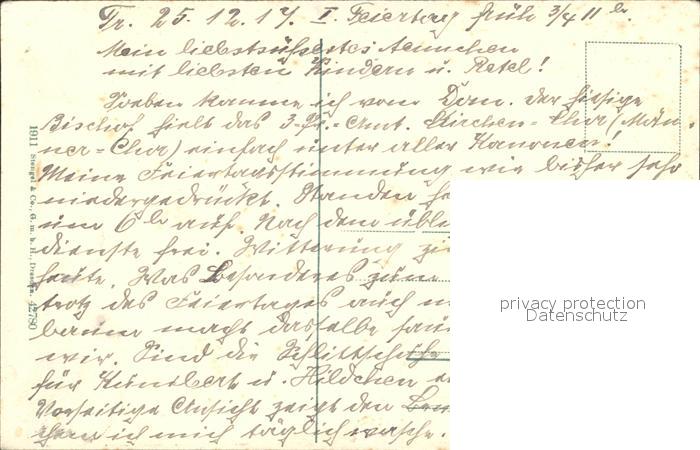 Tr. 25. 12. 17. I. Feiertag früh 3/4 11 h.
Mein liebstsüßestes Aennchen
mit liebsten Kindern u. Retel!
Soeben komme ich vom Dom. Der hiesige
Bischof hielt das 3. Amt. Kirchen-Chor (Män-
ner-Chor) einfach unter aller Kanonen!
Meine Feiertagsstimmung wie bisher sehr
niedergedrückt. Standen
um 6 h auf. Nach dem übli
dienste frei. Witterung
heute. Was Besonderes zum
trotz des Feiertages auch
baum macht dasselbe
wir. Sind die Schlittschuhe
für Kunibert u. Hildchen
Vorseitige Ansicht zeigt den
chem ich mich täglich wasche.
1911 Stengel & Co., G. m. b. H., Dresden. 42780
privacy protection
Datenschutz